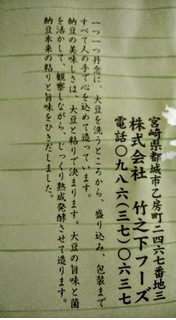 宮崎県都城市乙房町二四六七番地三
株式会社 竹之下フーズ
電話〇九八六(三七)〇六三七
一つ一つ丹念に、大豆を洗うところから、盛り込み、包装まで
すべて人の手で心を込めて造っています。
納豆の美味しさは、大豆と粘りで決まります。大豆の旨味と菌
を活かして、観察しながら、じっくり熟成発酵させて造ります。
納豆本来の粘りと旨味をひきだしました。